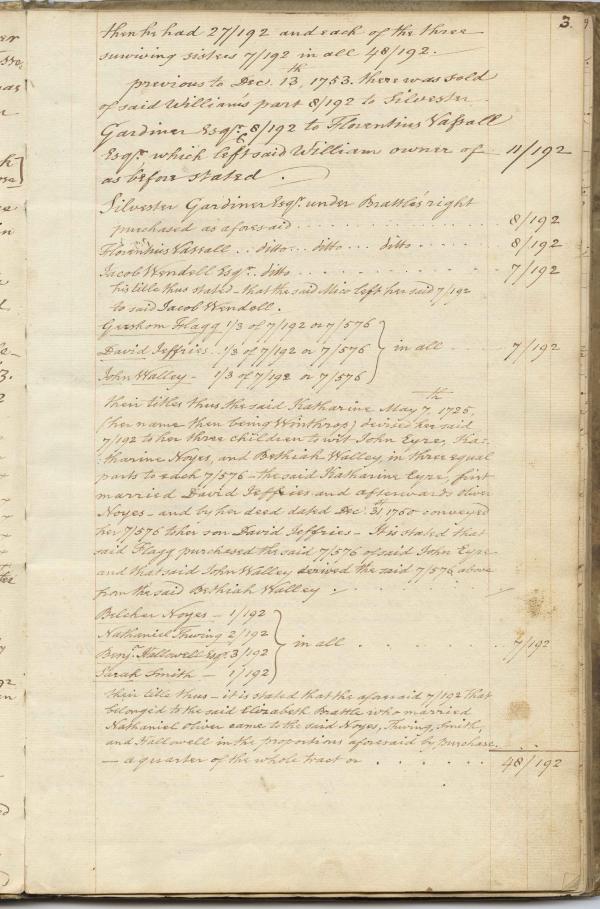 3.
then he had 27/192 and each of the three
surviving sisters 7/192 in all 48/192.
previous to Dec. 13th, 1753. there was sold
of said William's part 8/192 to Silvester
Gardiner Esqr. & 8/192 to Florentius Vassall
Esqr. which left said William owner of 11/192
as before stated.
Silvester Gardiner Esqr. under Brattle's right
purchased as aforesaid . . . . . . . 8/192
Florentius Vassall .. ditto ... ditto ... ditto . . . . 8/192
Jacob Wendell Esqr. ditto . . . . . . . 7/192
his title thus stated - that the said Mico left her said 7/192
to said Jacob Wendell.
Gershom Flagg 1/3 of 7/192 or 7/576
David Jeffries .. 1/3 of 7/192 or 7/576 } in all . . . . 7/192
John Walley - 1/3 of 7/192 or 7/576
their titles thus the said Katharine May 7th, 1725,
(her name then being Winthrop) devised her said
7/192 to her three children to wit John Eyre, Ka-
tharine Noyes, and Bethiah Walley, in three equal
parts to each 7/576 - the said Katharine Eyre, first
married David Jeffries and afterwards Oliver
Noyes - and by her deed dated Dec. 31st 1760 conveyed
her 7/576 to her son David Jeffries - It is stated that
said Flagg purchased the said 7/576 of said John Eyre
and that said John Walley derived the said 7/576 above
from the said Bethiah Walley.
Belcher Noyes - 1/192
Nathaniel Thwing 2/192
Benj. Hallowell Esqr. 3/192 } in all . . . . . . 7/192
Sarah Smith - 1/192
their title thus - it is stated that the aforesaid 7/192 that
belonged to the said Elizabeth Brattle who married
Nathaniel Oliver came to the said Noyes, Thwing, Smith,
and Hallowell in the proportions aforesaid by purchase.
- a quarter of the whole tract or . . . . . . 48/192